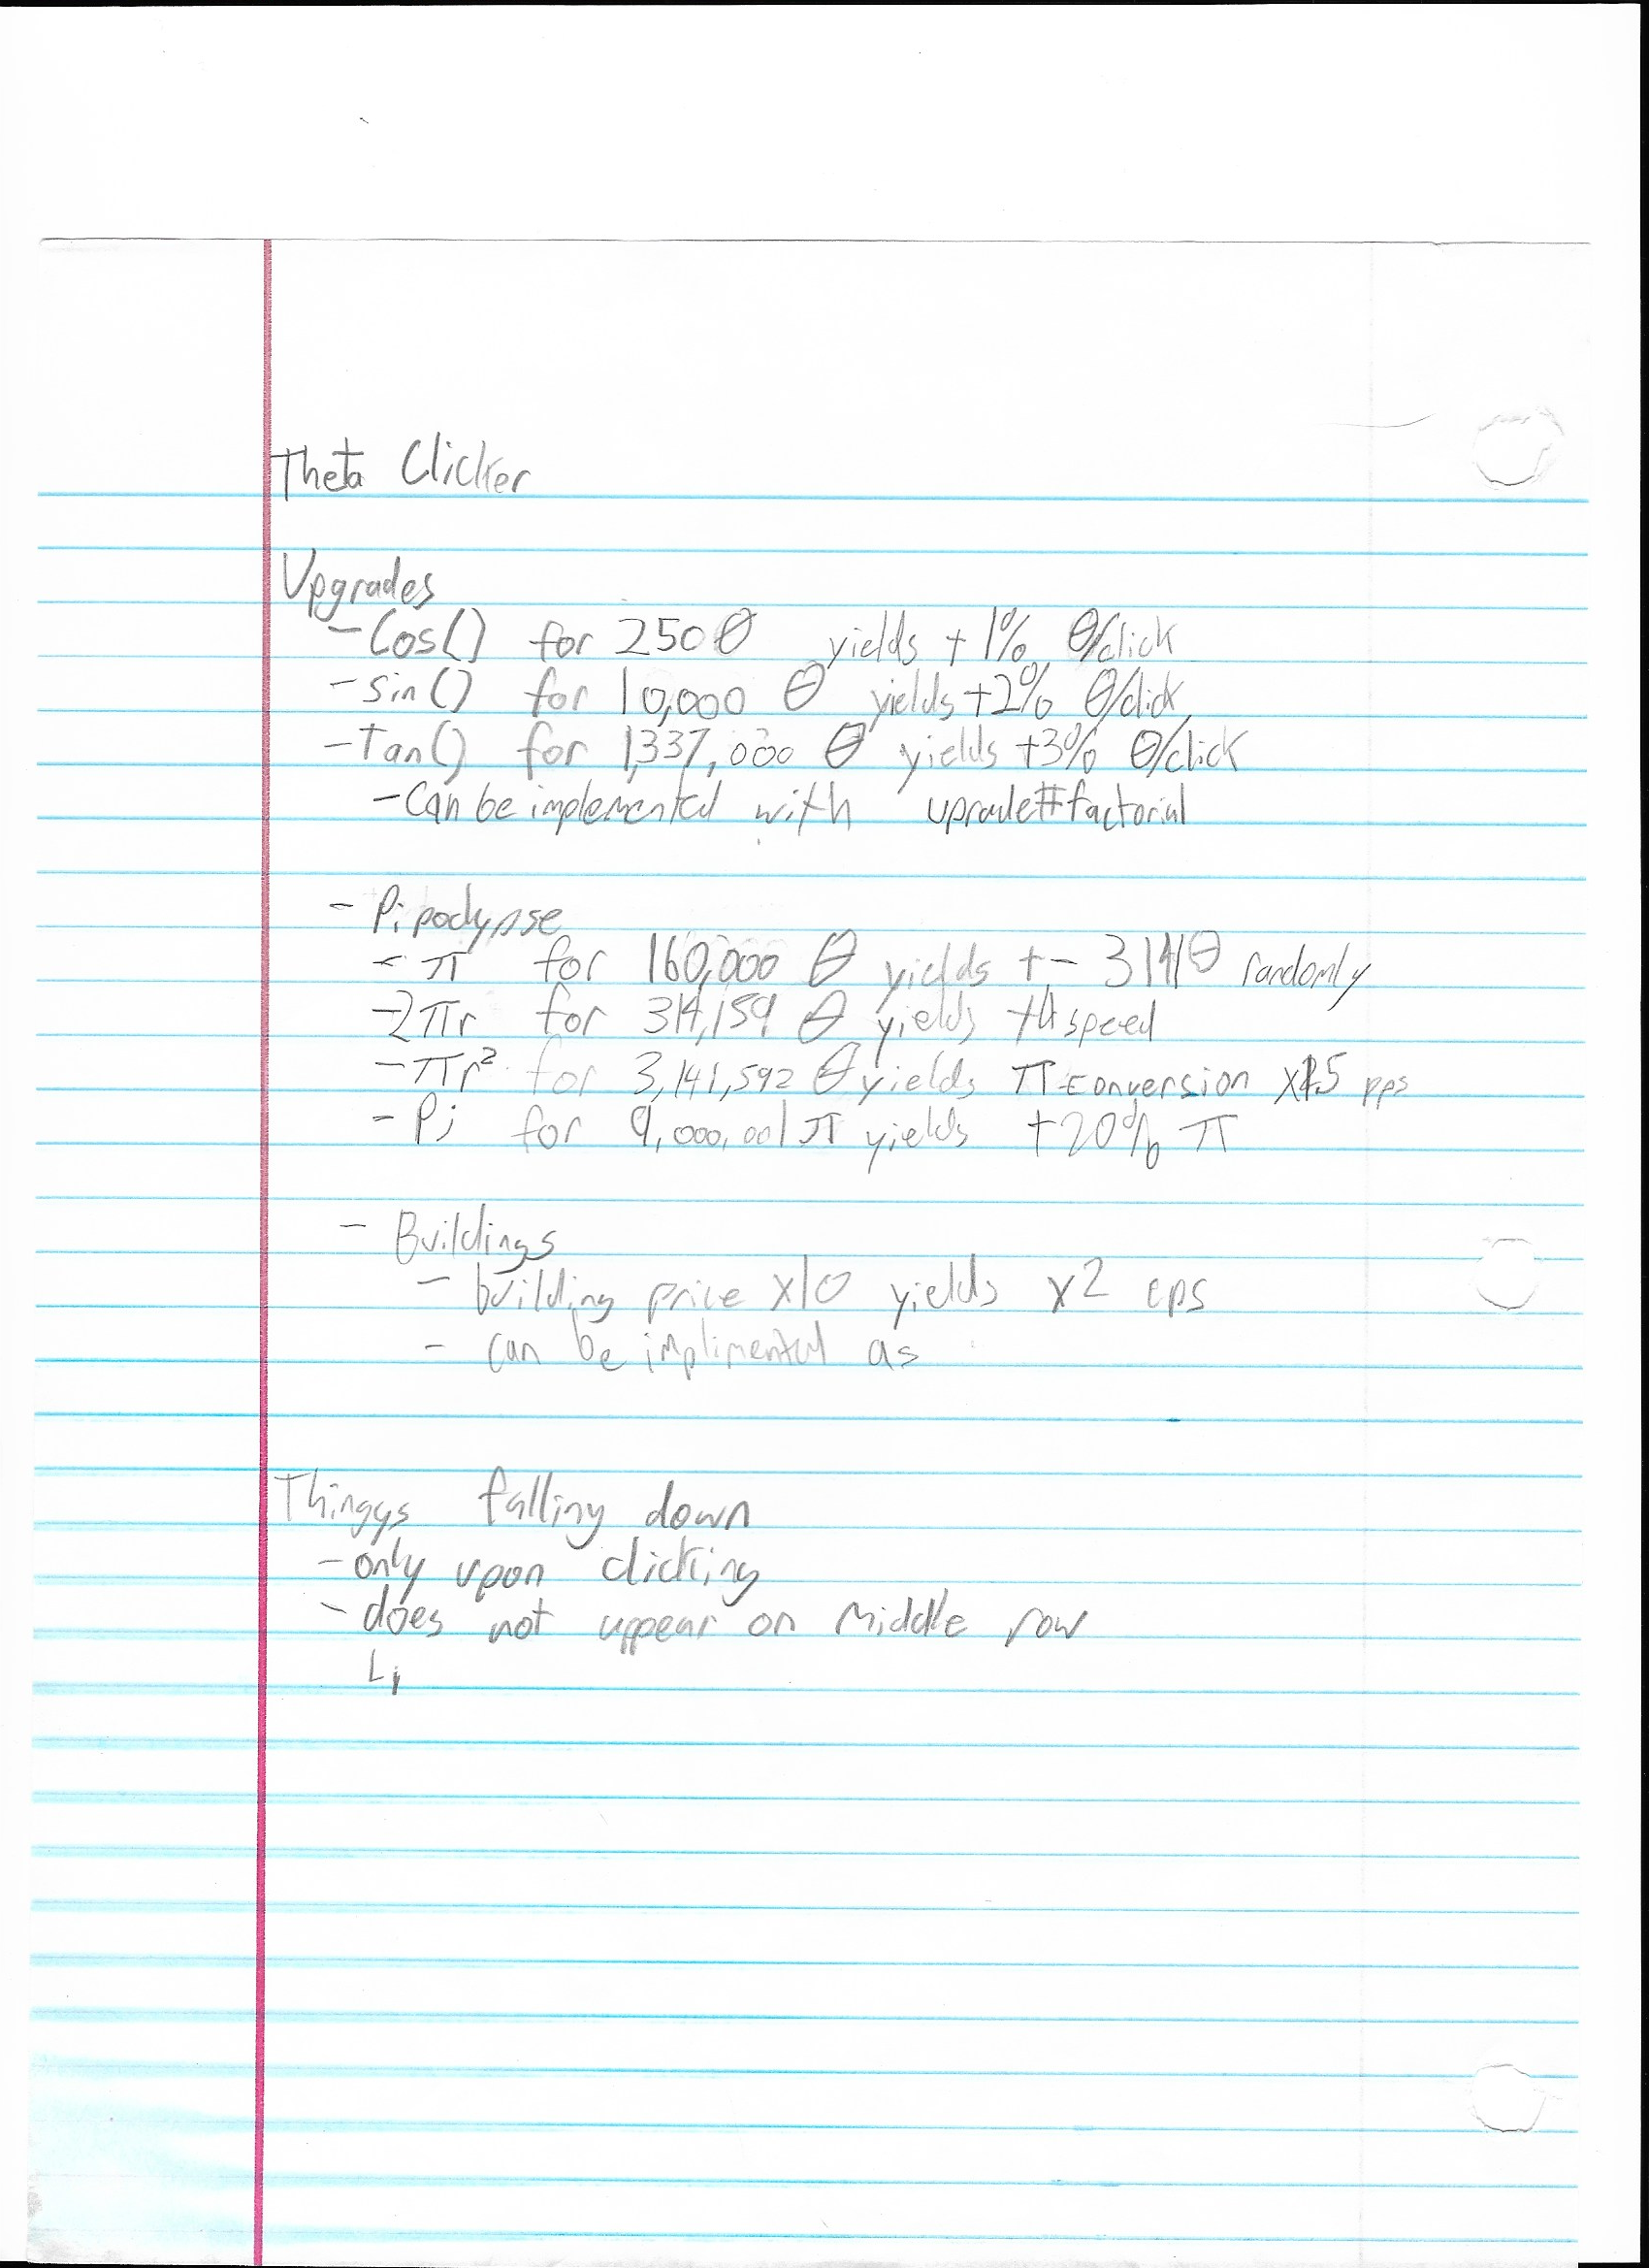 Theta Clicker
Upgrades
- Cos() for 250 θ yields + 1% θ/click
- sin() for 10,000 θ yields +2% θ/click
- Tan() for 1,337,000 θ yields +3% θ/click
- Can be implemented with #factorial
- Pipoclypse
- π for 160,000 θ yields +- 3141θ randomly
- 2πr for 314,159 θ yields speed
- πr² for 3,141,592 θ yields π conversion pps
- Pi for 9,000,001 π yields +20% π
- Buildings
- building price x10 yields x2 eps
- can be implimented as
Thinggs falling down
- only upon clicking
- does not appear on Middle row